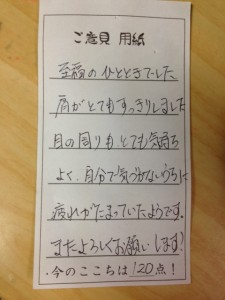 ご意見 用紙
至福のひとときでした
肩がとてもすっきりしました
目の周りもとても気持ち
よく、自分で気づかないうちに
疲れがたまっていたようです。
またよろしくお願いします!
・今のここちは120点!